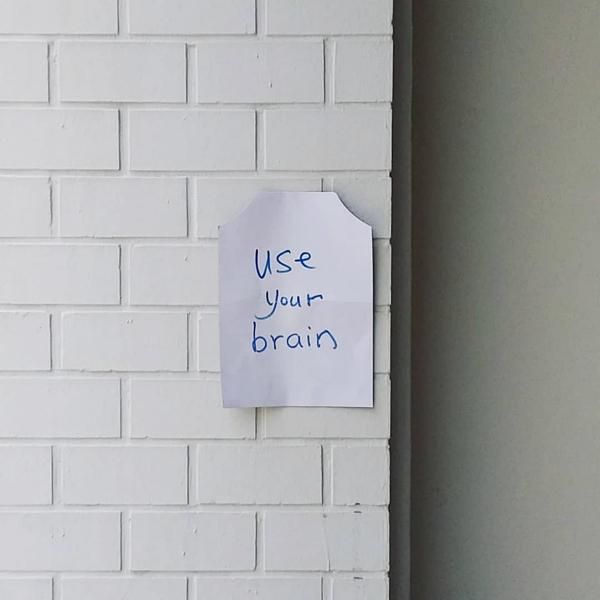 use
your
brain